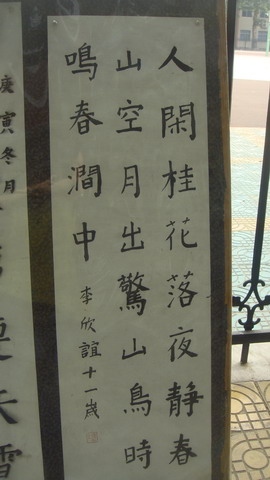 人閑桂花落夜静春
山空月出驚山鳥時
鳴春澗中
李欣誼十一歲
庚寅冬月